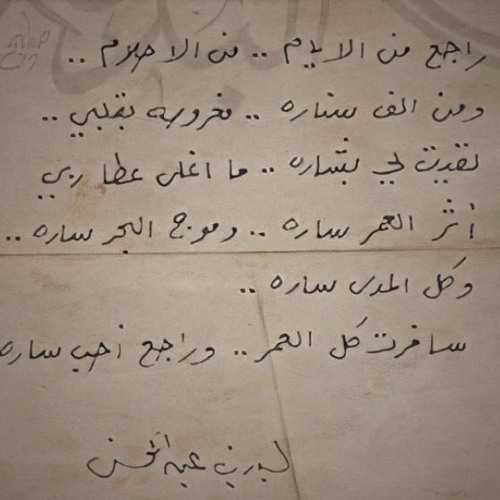 راجع من الايام .. من الاحلام ..
ومن الف سناره .. مغروسه بقلبي ..
لقيت لي بشاره .. ما اغلى عطا ربي
أثر العمر ساره .. وموج البحر ساره ..
وكل المدى ساره ..
سافرت كل العمر .. وراجع أحب ساره
بدر بن عبد المحسن